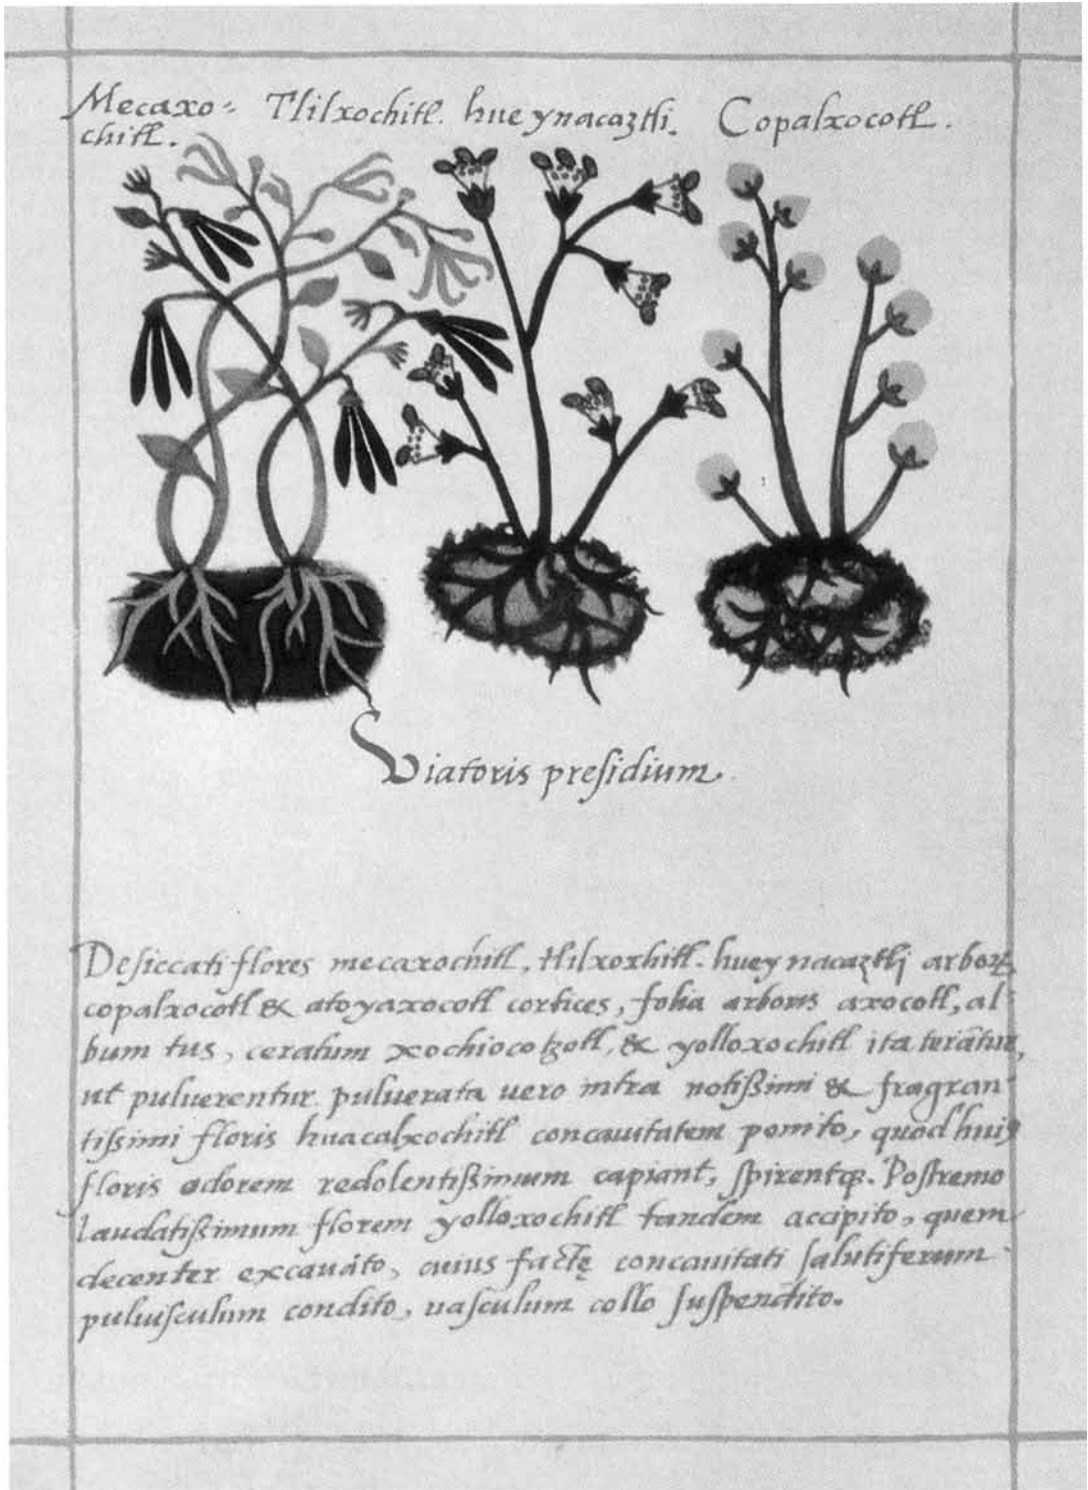 Mecaxo⸗ Tlilxochitl. hueynacaztli. Copalxocotl.
chitl.
Viatoris presidium.
Desiccati flores mecaxochitl, tlilxoxhitl. huey nacaztli arborꝝ
copalxocotl & atoyaxocotl cortices, folia arboris axocotl, al⸗
bum tus, ceratum xochiocotzotl, & yolloxochitl ita terātur,
ut puluerentur. puluerata uero intra notißimi & fragran⸗
tißimi floris huacalxochitl concauitatem ponito, quod huiꝰ
floris odorem redolentißimum capiant, spirentqꝫ. Postremo
laudatißimum florem yolloxochitl tandem accipito, quem
decenter excauato, cuius factę concauitati salutiferum
puluisculum condito, uasculum collo suspendito.